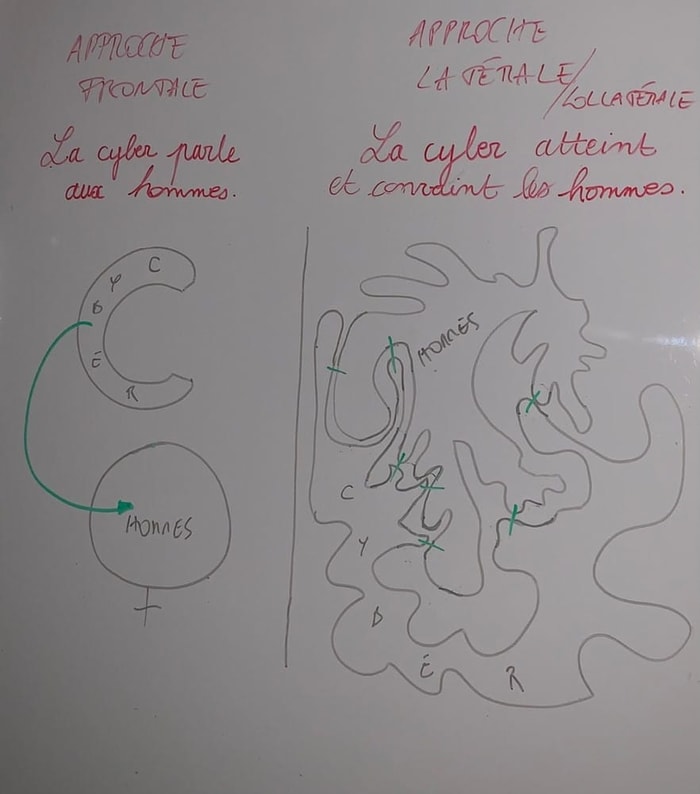 APPROCHE
FRONTALE
La cyber parle
aux hommes.
C
Y
B
É
R
HOMMES
APPROCHE
LATÉRALE/
/COLLATÉRALE
La cyber atteint
et conraint les hommes.
HOMMES
C
Y
B
É
R